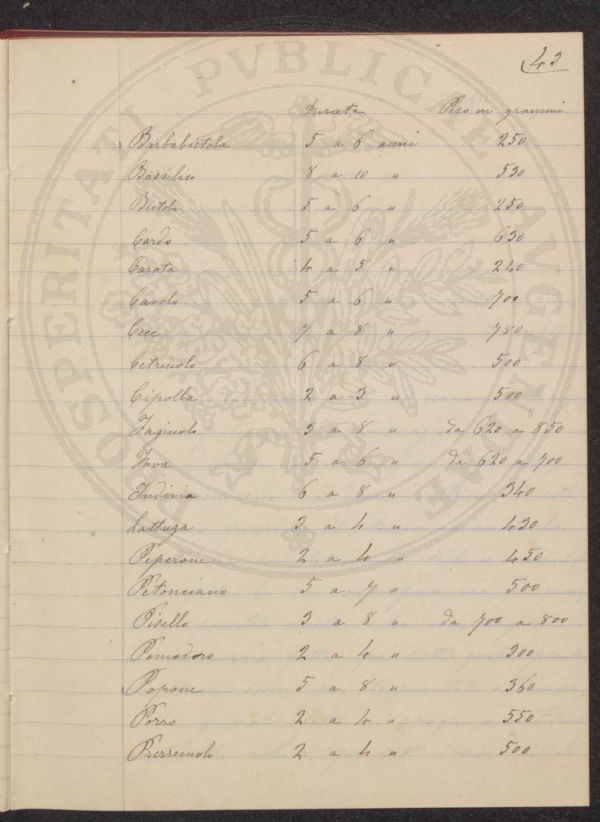 42
Durata Peso in grammi
Barbabietola 5 a 6 anni 250
Basilico 8 a 10 " 530
Bietola 5 a 6 " 250
Cardo 5 a 6 " 630
Carota 4 a 5 " 240
Cavolo 5 a 6 " 700
Cece 7 a 8 " 780
Cetriuolo 6 a 8 " 500
Cipolla 2 a 3 " 500
Fagiuolo 3 a 8 " da 620 a 850
Fava 5 a 6 " da 620 a 700
Indivia 6 a 8 " 340
Lattuga 3 a 4 " 430
Peperone 2 a 4 " 450
Petonciano 5 a 7 " 500
Pisello 3 a 8 " da 700 a 800
Pomodoro 2 a 4 " 300
Popone 5 a 8 " 360
Porro 2 a 4 " 550
Prezzemolo 2 a 4 " 500
PROSPERITATI PVBLICAE AVGENDAE